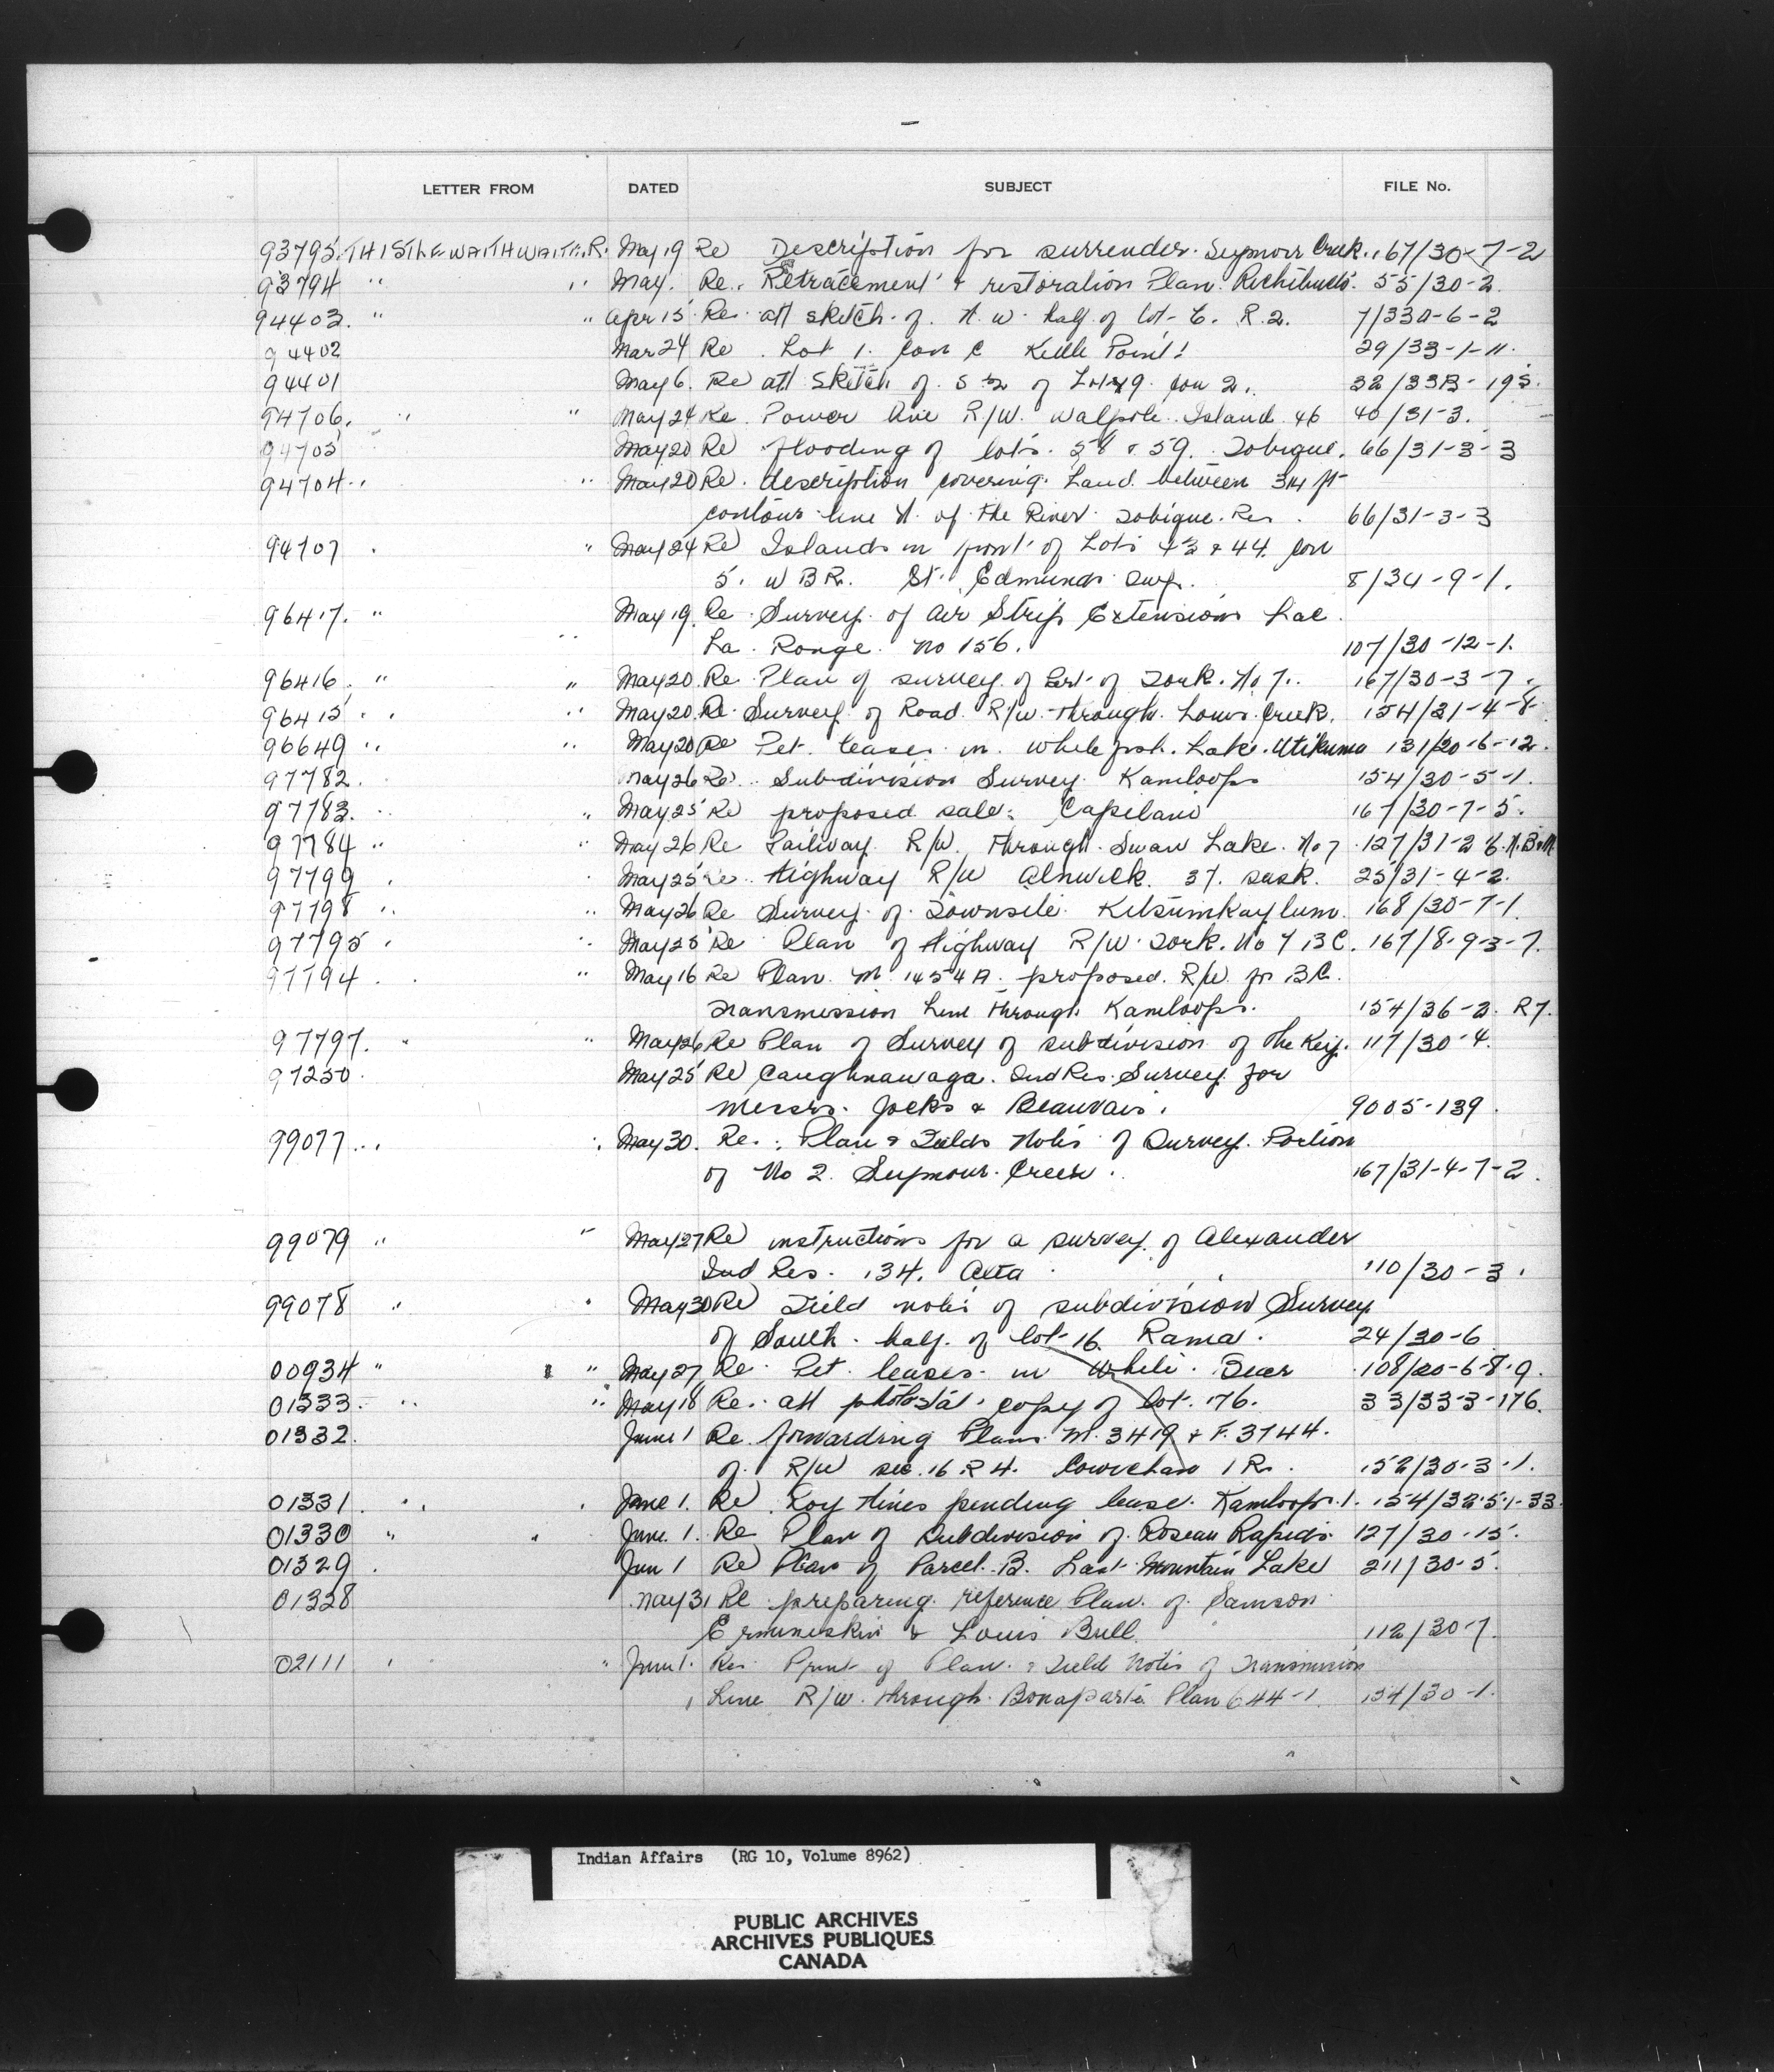 LETTER FROM DATED SUBJECT FILE No.
93795 THISTLEWAITHWAITE. R. May 19 Re Description for surrender. Seymour Creek. 167/30-7-2
93794 " " May. Re. Retracement & restoration Plan. Richibucto. 55/30-2.
94403. " " Apr 15 Re att sketch of. N.W. half of lot 6. R.2. 7/33A-6-2
94402 Mar 24 Re. Lot 1. Con C Kettle Point. 29/33-1-11.
94401 May 6. Re att sketch of. S ½ of Lot 19. Con 2. 32/33B-195.
94706. " " May 24 Re Power line R/W. Walpole Island 46 40/31-3.
94705 May 20 Re flooding of lots. 58 & 59. Tobique. 66/31-3-3
94704 " " May 20 Re. description covering Land between 314 ft
contour line N. of the River Tobique. Res. 66/31-3-3
94707 " May 24 Re Islands in front of Lots 43 & 44. Con
5. W B R. St. Edmunds Twp. 8/34-9-1.
96417. " May 19. Re Survey of Air Strip Extensions Lac
" La Ronge. No 156. 107/30-12-1.
96416. " " May 20. Re Plan of survey of Part of York. No 7. 167/30-3-7.
96415 " " May 20. Re Survey of Road R/W through Louis Creek. 154/31-4-8
96649 " " May 20 Re Pet. leases in Whitefish Lake. Utikuma 131/20-6-12.
97782. May 26 Re. Subdivision Survey Kamloops 154/30-5-1.
97783. " May 25 Re proposed sale. Capilano 167/30-7-5.
97784 " " May 26 Re Railway R/W. through Swan Lake. No 7 127/31-2
97799 May 25 Re. Highway R/W Alnwick. 37. 25/31-4-2.
97798 " " May 26 Re Survey of Townsite Kitsumkaylum. 168/30-7-1
97795 " May 25 Re Plan of Highway R/W York. No 7 BC. 167/8-9-3-7.
97794 " May 16 Re Plan M 1454A proposed R/W for B.C.
Transmission Line through Kamloops. 154/36-2. R7.
97797. " " May 26 Re Plan of Survey of subdivision of the Key. 117/30-4.
97250. May 25 Re Caughnawaga. Ind Res. Survey for
Messrs. Jocks & Beauvais. 9005-139.
99077 " " May 30. Re. Plan & Fields Notes of Survey. Portion
of No 2. Seymour Creek. 167/31-4-7-2.
99079 " " May 27 Re instructions for a survey of Alexander
Ind Res. 134. Alta 110/30-3.
99078 " " May 30 Re Field notes of subdivision Survey
of South half of lot 16 Rama. 24/30-6
00934 " " May 27 Re Pet. leases in White Bear 108/20-6-8-9.
01333. " " May 18 Re. att photostat copy of lot. 176. 33/33-3-176.
01332. June 1 Re forwarding Plans M. 3419 & F. 3744.
of R/W sec. 16. R 4. Cowichan 1 R. 152/30-3-1.
01331. " " June 1. Re Roy Hines pending lease. Kamloops. 1. 154/32-5-1-33
01330 " " June. 1. Re Plan of Subdivision of Roseau Rapids. 127/30-15.
01329. Jun 1 Re Plan of Parcel. B. Last Mountain Lake 211/30-5.
01328 May 31 Re preparing reference Plan. of Samson
Ermineskin & Louis Bull. 112/30-7.
02111 " " June 1. Re Print of Plan & Field Notes of Transmission
Line R/W. through Bonaparte Plan 644-1. 154/30-1.
Indian Affairs (RG 10, Volume 8962)
PUBLIC ARCHIVES
ARCHIVES PUBLIQUES
CANADA